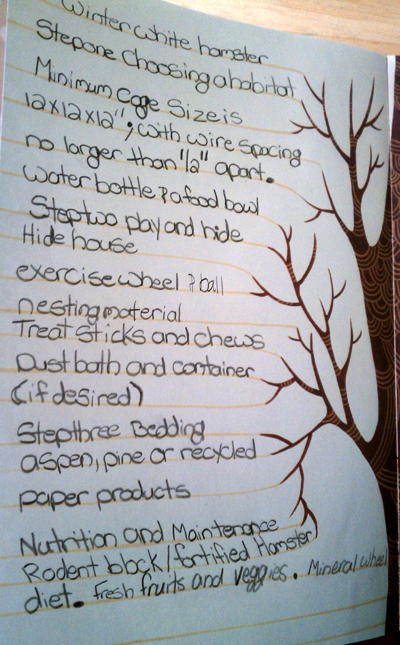 Winter white hamster
Stepone Choosing a habitat
Minimum Cage Size is
12x12x12"; with wire spacing
no larger than "1/2" apart.
Water bottle & a food bowl
Steptwo play and hide
Hide house
exercise wheel & ball
nesting material
Treat sticks and chews
Dust bath and container
(if desired)
Stepthree Bedding
aspen, pine or recycled
paper products
Nutrition and Maintenance
Rodent block/fortified Hamster
diet. Fresh fruits and veggies. Mineral Wheel